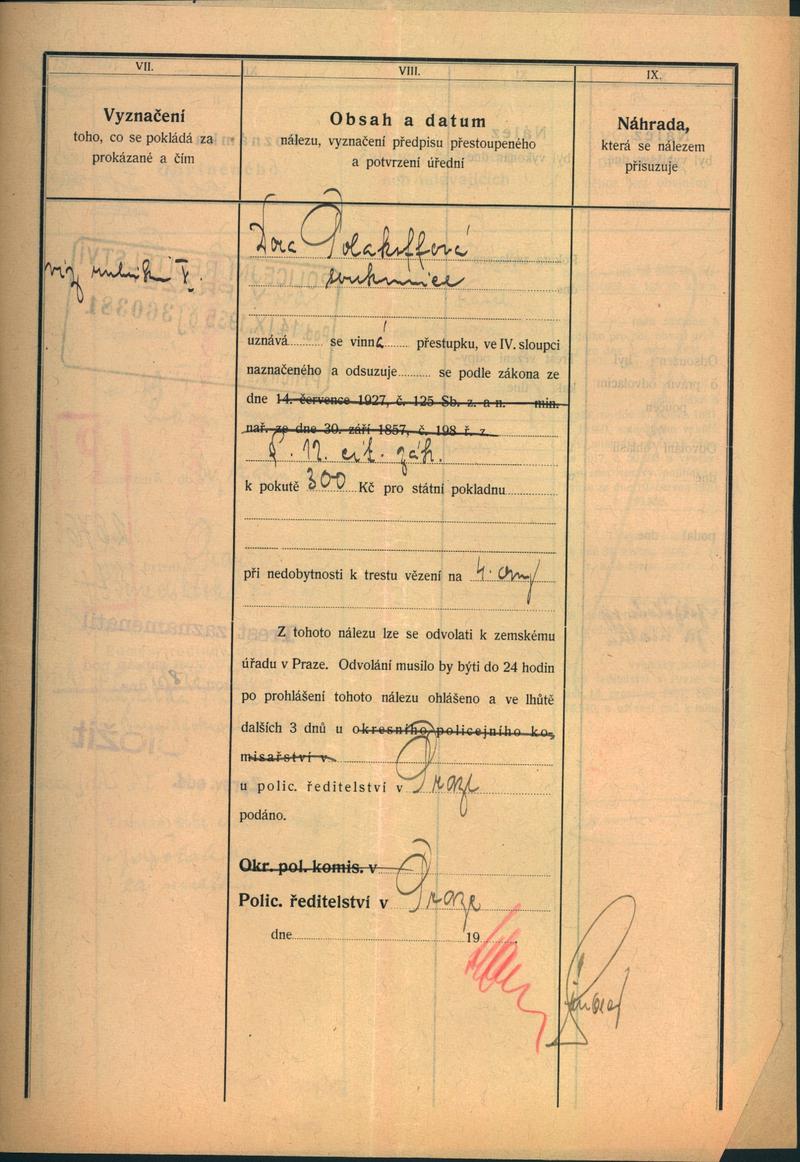 VII.
VIII.
IX.
Vyznačení
toho, co se pokládá za
prokázané a čím
Obsah a datum
nálezu, vyznačení předpisu přestoupeného
a potvrzení úřední
Náhrada,
která se nálezem
přisuzuje
Dora Polakiffová
soukromnice
viz rubriku V.
uznává se vinná přestupku, ve IV. sloupci
naznačeného a odsuzuje se podle zákona ze
dne 14. července 1927, č. 125 Sb. z. a n. — min.
nař. ze dne 30. září 1857, č. 198 ř. z.
§. 12. cit. zák.
k pokutě 300 Kč pro státní pokladnu
při nedobytnosti k trestu vězení na 4 dny
Z tohoto nálezu lze se odvolati k zemskému
úřadu v Praze. Odvolání musilo by býti do 24 hodin
po prohlášení tohoto nálezu ohlášeno a ve lhůtě
dalších 3 dnů u okresního policejního ko-
misařství v
u polic. ředitelství v Praze
podáno.
Okr. pol. komis. v
Polic. ředitelství v Praze
dne 19